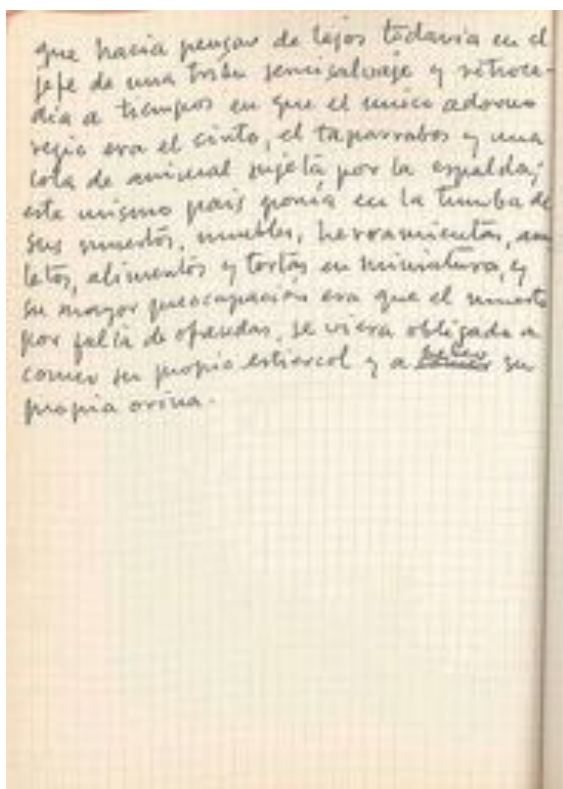 que hacia pensar de lejos todavia en el
jefe de una tribu semisalvaje y retroce-
dia a tiempos en que el unico adorno
regio era el cinto, el taparrabos y una
cola de animal sujeta por la espalda;
este mismo pais ponia en la tumba de
sus muertos, muebles, herramientas, amu
letos, alimentos y tortas en miniatura, y
su mayor preocupación era que el muerto
por falta de ofrendas, se viera obligado a
comer su propio estiercol y a beber su
propia orina.